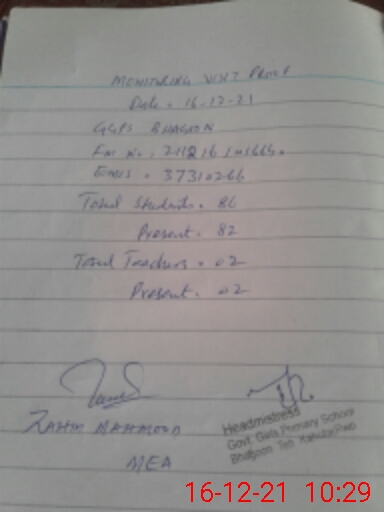 MONITORING VISIT PROOF
Date = 16-12-21
GGPS BHAGOON
Emis = 37310266
Total Students = 86
Present = 82
Total Teachers = 02
Present = 02
MAHMOOD
MEA
Headmistress
Govt. Girls Primary School
Bhagoon Teh
16-12-21 10:29